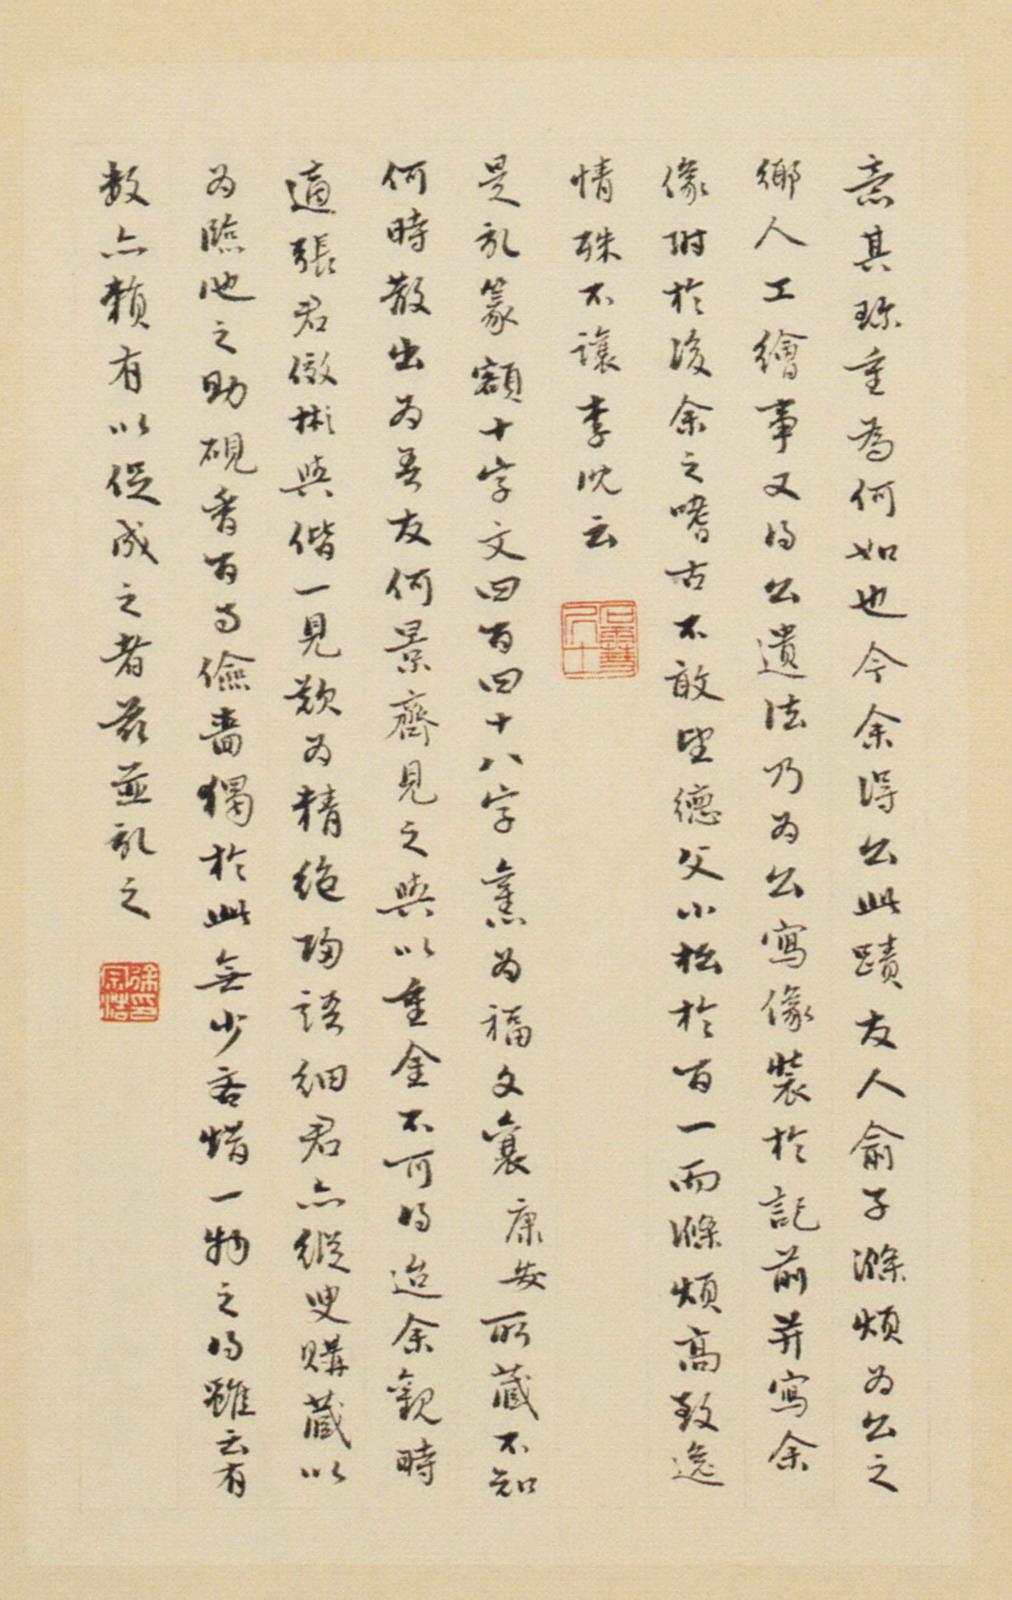 意其珎重為何如也今余得公此蹟友人俞子滌煩为公之
鄉人工繪事又得公遺法乃为公寫像裝於記前并寫余
像附於後余之嗜古不敢望德父小松於百一而滌煩高致逸
情殊不讓李沈云
是記篆額十字文四百四十八字舊为福文襄康安所藏不知
何時散出为吾友何景齊見之與以重金不可得迨余觀時
適張君儆彬與偕一見歎为精絕歸語細君亦縱臾購藏以
为臨池之助硯香百事儉嗇獨於此無少吝惜一物之得雖云有
数亦賴有以促成之者茲並記之
徐印宗浩